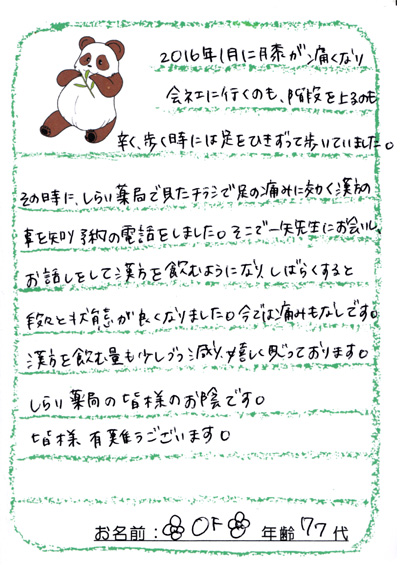 2016年1月に膝が痛くなり
会社に行くのも、階段を上るのも
辛く、歩く時には足をひきずって歩いていました。
その時に、しらい薬局で見たチラシで足の痛みに効く漢方の
事を知り予約の電話をしました。そこで一矢先生にお会いし、
お話しをして漢方を飲むようになり、しばらくすると
段々と状態が良くなりました。今では痛みもなしです。
漢方を飲む量も少しづつ減り、嬉しく思っております。
しらい薬局の皆様のお陰です。
皆様有難うございます。
お名前：OF 年齢77代